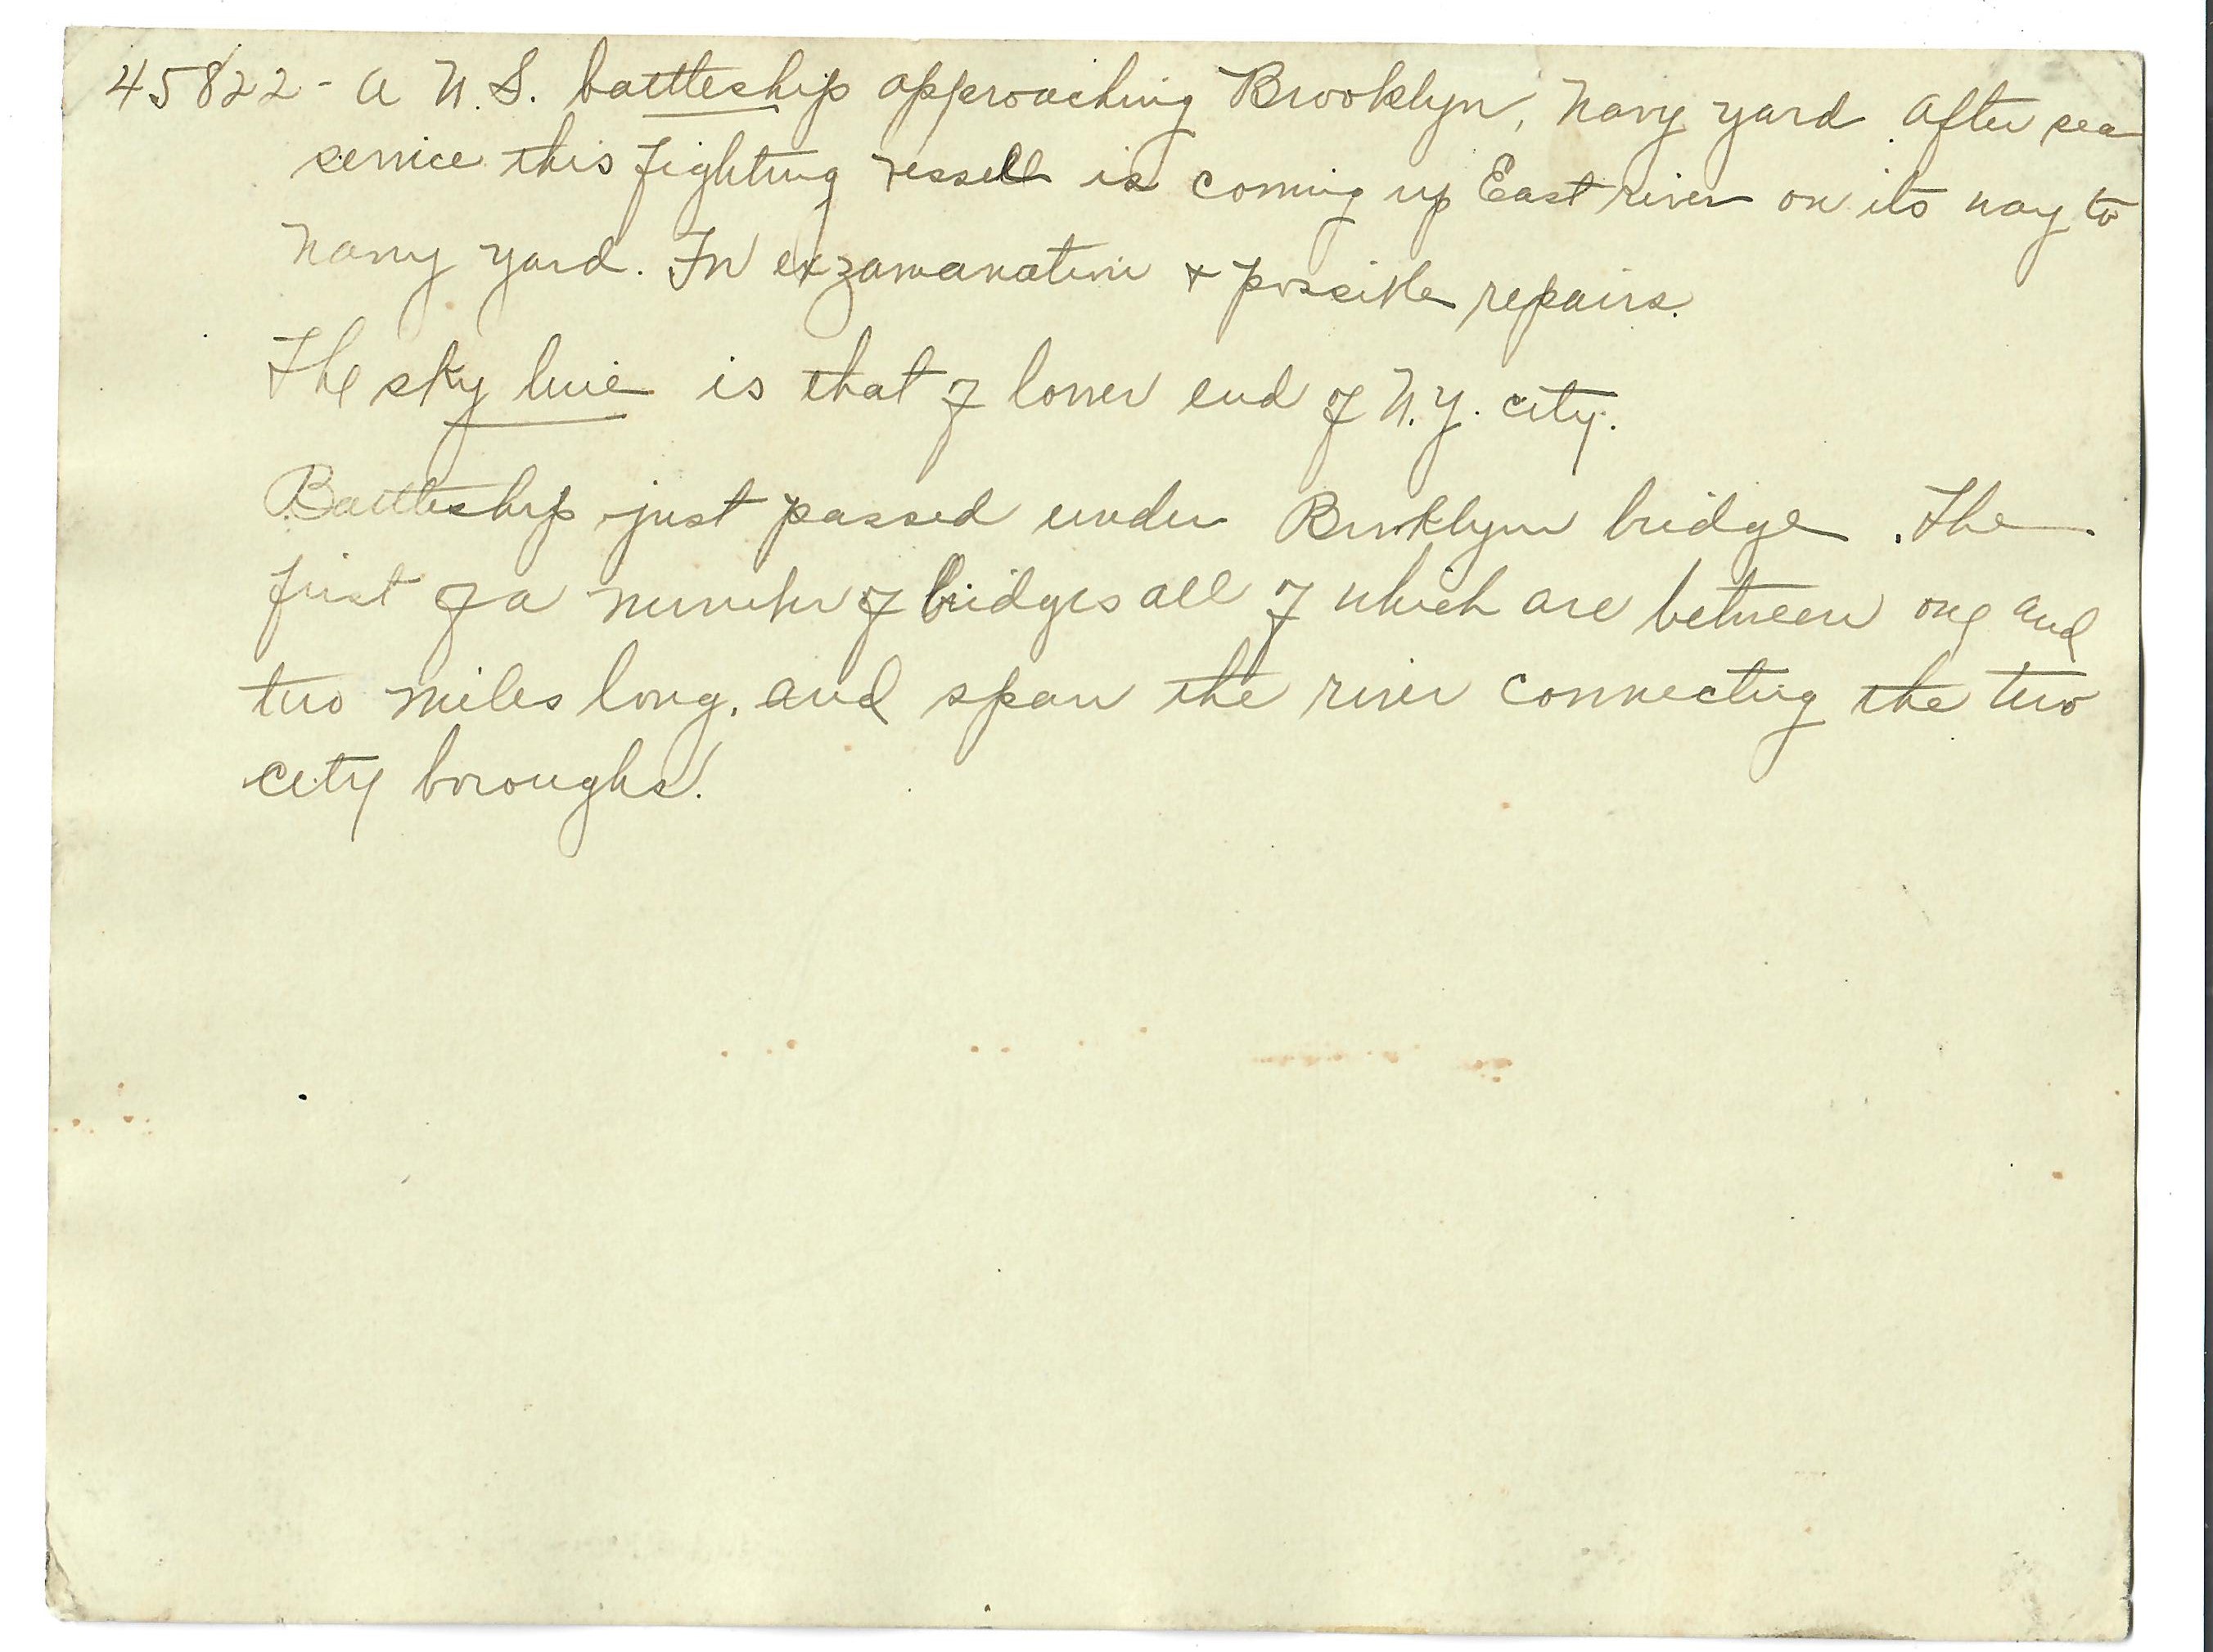 45822 - A U.S. battleship approaching Brooklyn, Navy yard. After sea
service this fighting vessell is coming up East river on its way to
Navy yard. For exzamanation + possible repairs.
The sky line is that of lower end of N.Y. city.
Battleship just passed under Brooklyn bridge. The
first of a number of bridges all of which are between one and
two miles long. and span the river connecting the two
city boroughs.